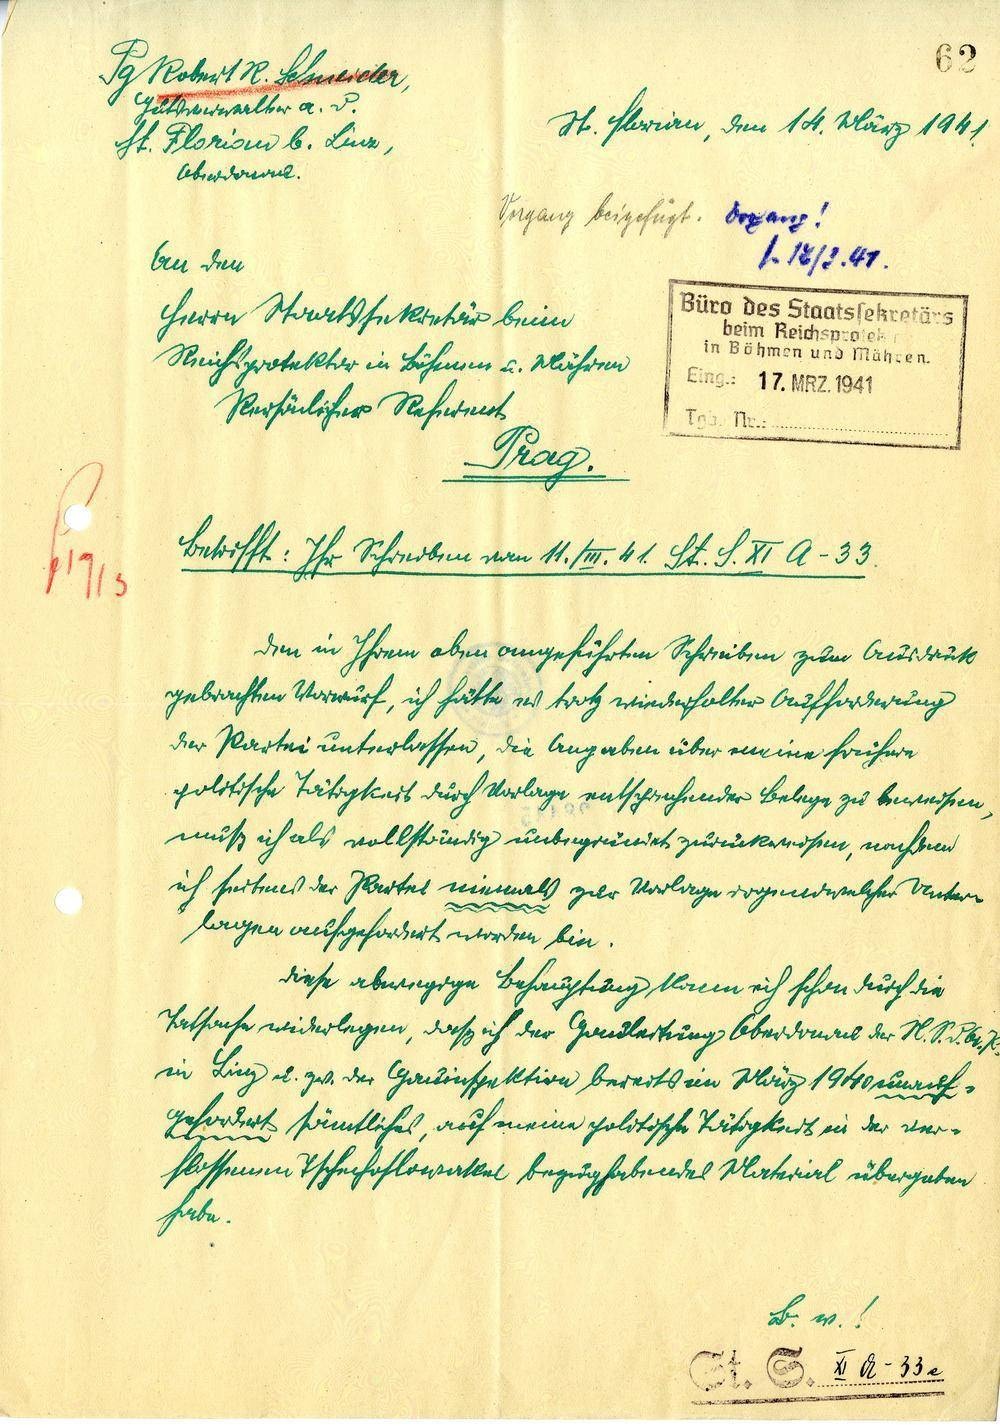 62
Pg Robert R. Schneider,
Gutsverwalter a. D.
St. Florian b. Linz,
Oberdonau.
St. Florian, den 14. März 1941
Vorgang beigefügt. Vorgang!
17/3.41.
An den
Herrn Staatssekretär beim
Reichsprotektor in Böhmen u. Mähren
Persönlicher Referent
Prag.
Büro des Staatssekretärs
beim Reichsprotektor
in Böhmen und Mähren.
Eing.: 17. MRZ. 1941
Tgb. Nr.:
19/3
Betrifft: Ihr Schreiben vom 11./III. 41. St. S. XI A - 33.
Den in Ihrem oben angeführten Schreiben zum Ausdruck
gebrachten Vorwurf, ich hätte es trotz wiederholter Aufforderung
der Partei unterlassen, die Angaben über meine frühere
politische Tätigkeit durch Vorlage entsprechender Belege zu beweisen,
muß ich als vollständig unbegründet zurückweisen, nachdem
ich seitens der Partei niemals zur Vorlage irgendwelcher Unter-
lagen aufgefordert worden bin.
Diese abwegige Behauptung kann ich schon durch die
Tatsache widerlegen, daß ich der Gauleitung Oberdonau der N.S.D.A.P.
in Linz u. zw. der Gauinspektion bereits im März 1940 unauf-
gefordert sämtliches, auf meine politische Tätigkeit in der ver-
flossenen Tschechoslowakei bezughabendes Material übergeben
habe.
B. w.!
St. S. XI A - 33 e